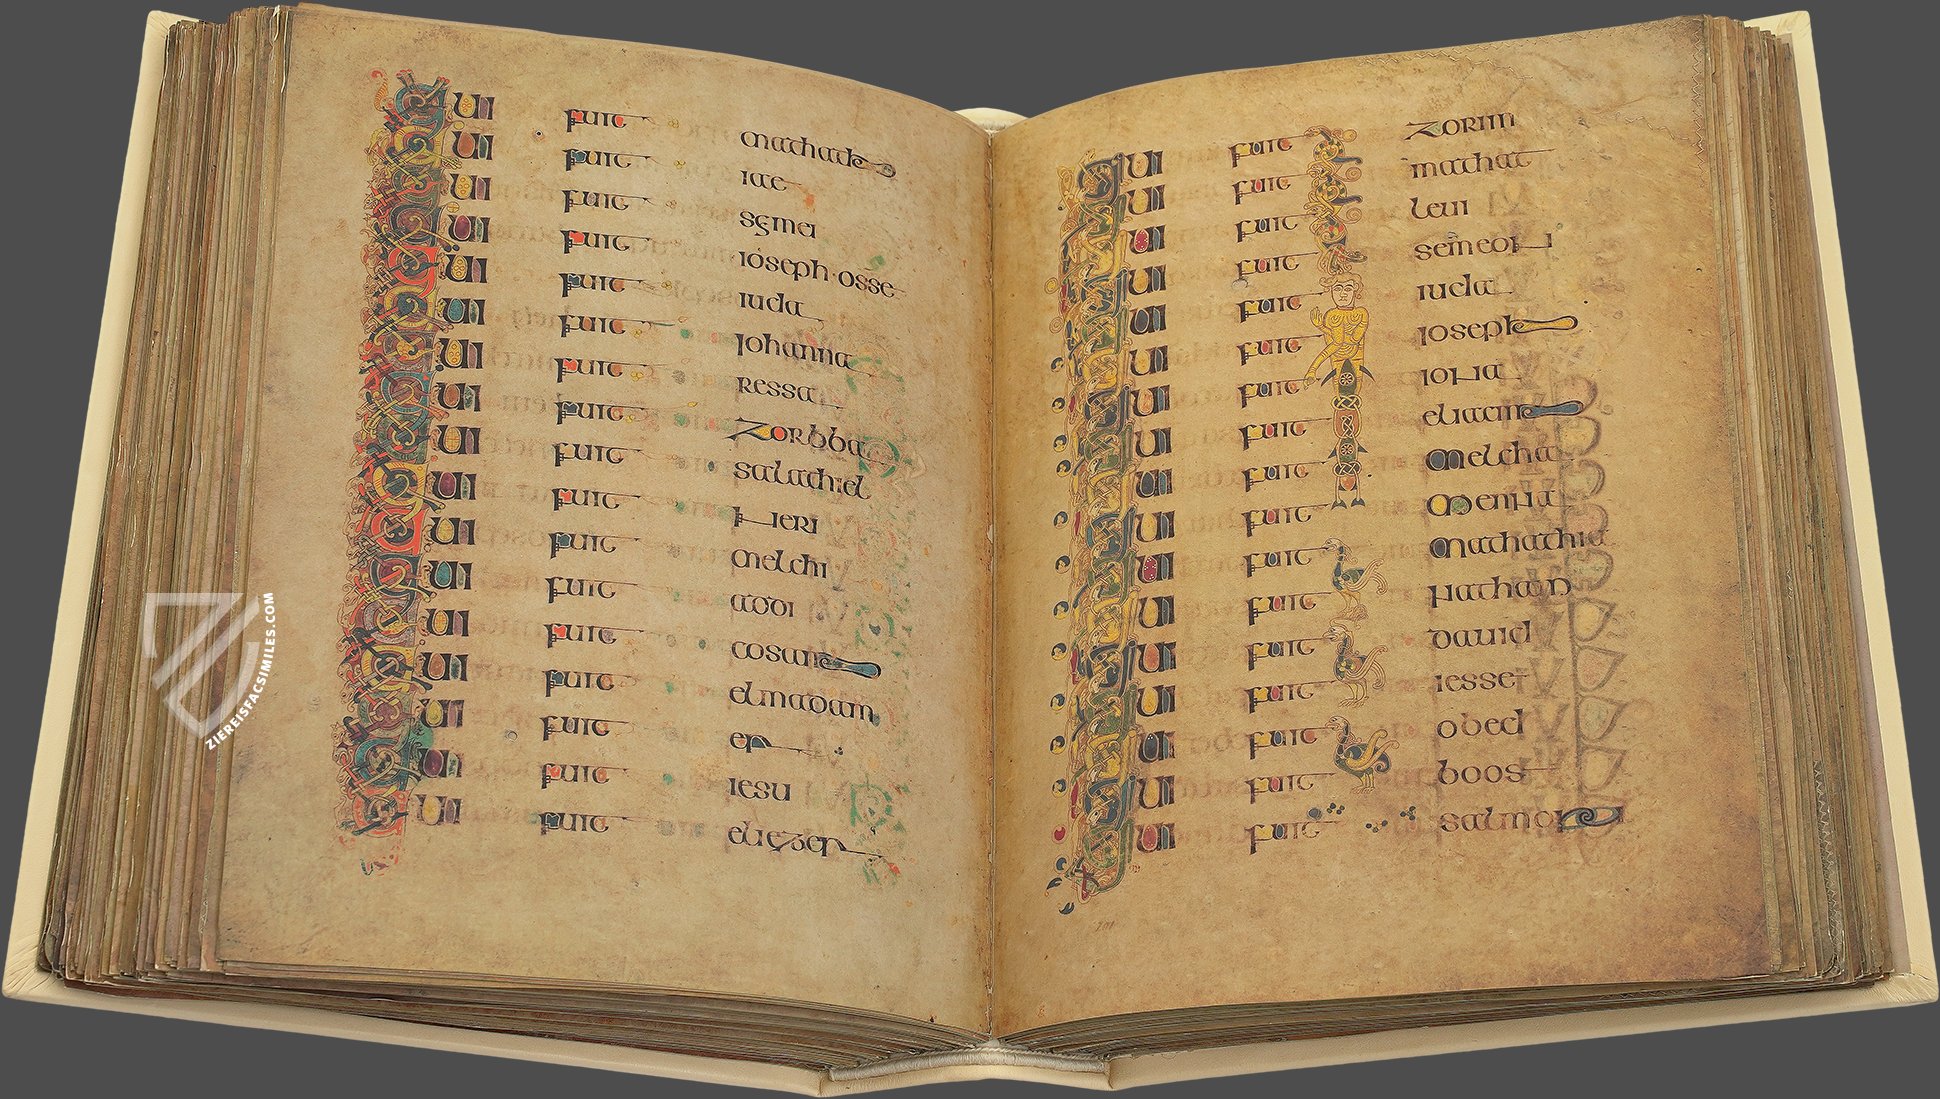 QUI fuit mathath
QUI fuit iae
QUI fuit semei
QUI fuit ioseph·osse
QUI fuit iuda
QUI fuit iohanna
QUI fuit ressa
QUI fuit zorbba
QUI fuit salathiel
QUI fuit neri
QUI fuit melchi
QUI fuit addi
QUI fuit cosam
QUI fuit elmadam
QUI fuit er
QUI fuit iesu
QUI fuit eliezer
QUI fuit zorim
QUI fuit mathat
QUI fuit leui
QUI fuit semeon
QUI fuit iuda
QUI fuit ioseph
QUI fuit iona
QUI fuit eliacim
QUI fuit melcha
QUI fuit menna
QUI fuit mathathia
QUI fuit nathan
QUI fuit dauid
QUI fuit iesse
QUI fuit obed
QUI fuit boos
QUI fuit salmon
201
ZIEREISFACSIMILES.COM